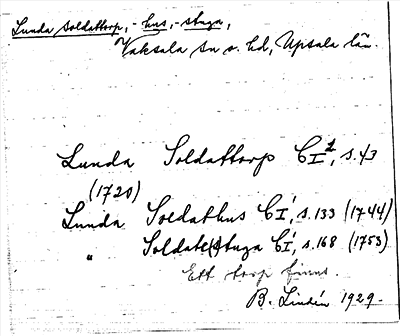 Lunda Soldattorp, -hus, -stuga,
Vaksala sn o. hd, Upsala län.
Lunda Soldattorp CI², s. 43
(1720)
Lunda Soldathus CI¹, s. 133 (1744)
" Soldate(s)tuga CI¹, s. 168 (1753)
Ett torp finns.
B. Lindén 1929.